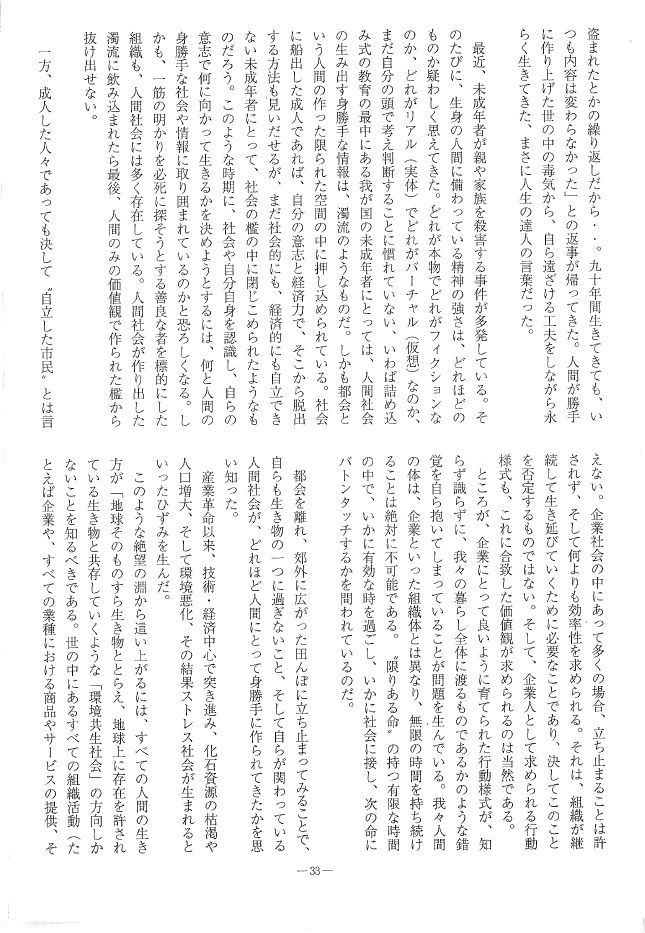 盗まれたとかの繰り返しだから・・。九十年間生きてきても、い
つも内容は変わらなかった」との返事が帰ってきた。人間が勝手
に作り上げた世の中の毒気から、自ら遠ざける工夫をしながら永
らく生きてきた、まさに人生の達人の言葉だった。
最近、未成年者が親や家族を殺害する事件が多発している。そ
のたびに、生身の人間に備わっている精神の強さは、どれほどの
ものか疑わしく思えてきた。どれが本物でどれがフィクションな
のか、どれがリアル（実体）でどれがバーチャル（仮想）なのか、
まだ自分の頭で考え判断することに慣れていない、いわば詰め込
み式の教育の最中にある我が国の未成年者にとっては、人間社会
の生み出す身勝手な情報は、濁流のようなものだ。しかも都会と
いう人間の作った限られた空間の中に押し込められている。社会
に船出した成人であれば、自分の意志と経済力で、そこから脱出
する方法も見いだせるが、まだ社会的にも、経済的にも自立でき
ない未成年者にとって、社会の檻の中に閉じこめられたようなも
のだろう。このような時期に、社会や自分自身を認識し、自らの
意志で何に向かって生きるかを決めようとするには、何と人間の
身勝手な社会や情報に取り囲まれているのかと恐ろしくなる。し
かも、一筋の明かりを必死に探そうとする善良な者を標的にした
組織も、人間社会には多く存在している。人間社会が作り出した
濁流に飲み込まれたら最後、人間のみの価値観で作られた檻から
抜け出せない。
一方、成人した人々であっても決して〝自立した市民〟とは言
えない。企業社会の中にあって多くの場合、立ち止まることは許
されず、そして何よりも効率性を求められる。それは、組織が継
続して生き延びていくために必要なことであり、決してこのこと
を否定するものではない。そして、企業人として求められる行動
様式も、これに合致した価値観が求められるのは当然である。
ところが、企業にとって良いように育てられた行動様式が、知
らず識らずに、我々の暮らし全体に渡るものであるかのような錯
覚を自ら抱いてしまっていることが問題を生んでいる。我々人間
の体は、企業といった組織体とは異なり、無限の時間を持ち続け
ることは絶対に不可能である。〝限りある命〟の持つ有限な時間
の中で、いかに有効な時を過ごし、いかに社会に接し、次の命に
バトンタッチするかを問われているのだ。
都会を離れ、郊外に広がった田んぼに立ち止まってみることで、
自らも生き物の一つに過ぎないこと、そして自らが関わっている
人間社会が、どれほど人間にとって身勝手に作られてきたかを思
い知った。
産業革命以来、技術・経済中心で突き進み、化石資源の枯渇や
人口増大、そして環境悪化、その結果ストレス社会が生まれると
いったひずみを生んだ。
このような絶望の淵から這い上がるには、すべての人間の生き
方が「地球そのものすら生き物ととらえ、地球上に存在を許され
ている生き物と共存していくような「環境共生社会」の方向しか
ないことを知るべきである。世の中にあるすべての組織活動（た
とえば企業や、すべての業種における商品やサービスの提供、そ
―33―